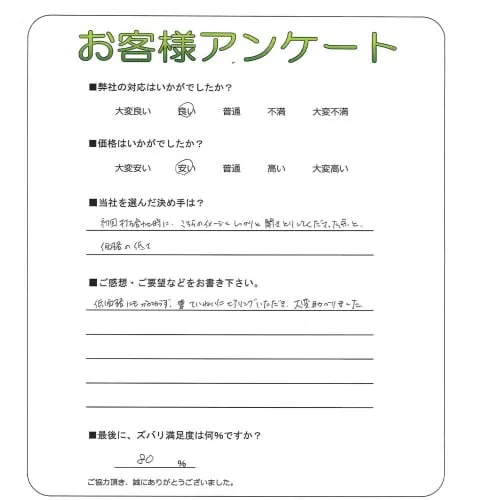 お客様アンケート
■弊社の対応はいかがでしたか？
大変良い 良い 普通 不満 大変不満
■価格はいかがでしたか？
大変安い 安い 普通 高い 大変高い
■当社を選んだ決め手は？
初回打ち合わせ時に、こちらのイメージをしっかりと聞きとりしてくださった点と、
価格の低さ
■ご感想・ご要望などをお書き下さい。
低価格にもかかわらず、ていねいにヒアリングいただき、大変助かりました
■最後に、ズバリ満足度は何％ですか？
80 ％
ご協力頂き、誠にありがとうございました。